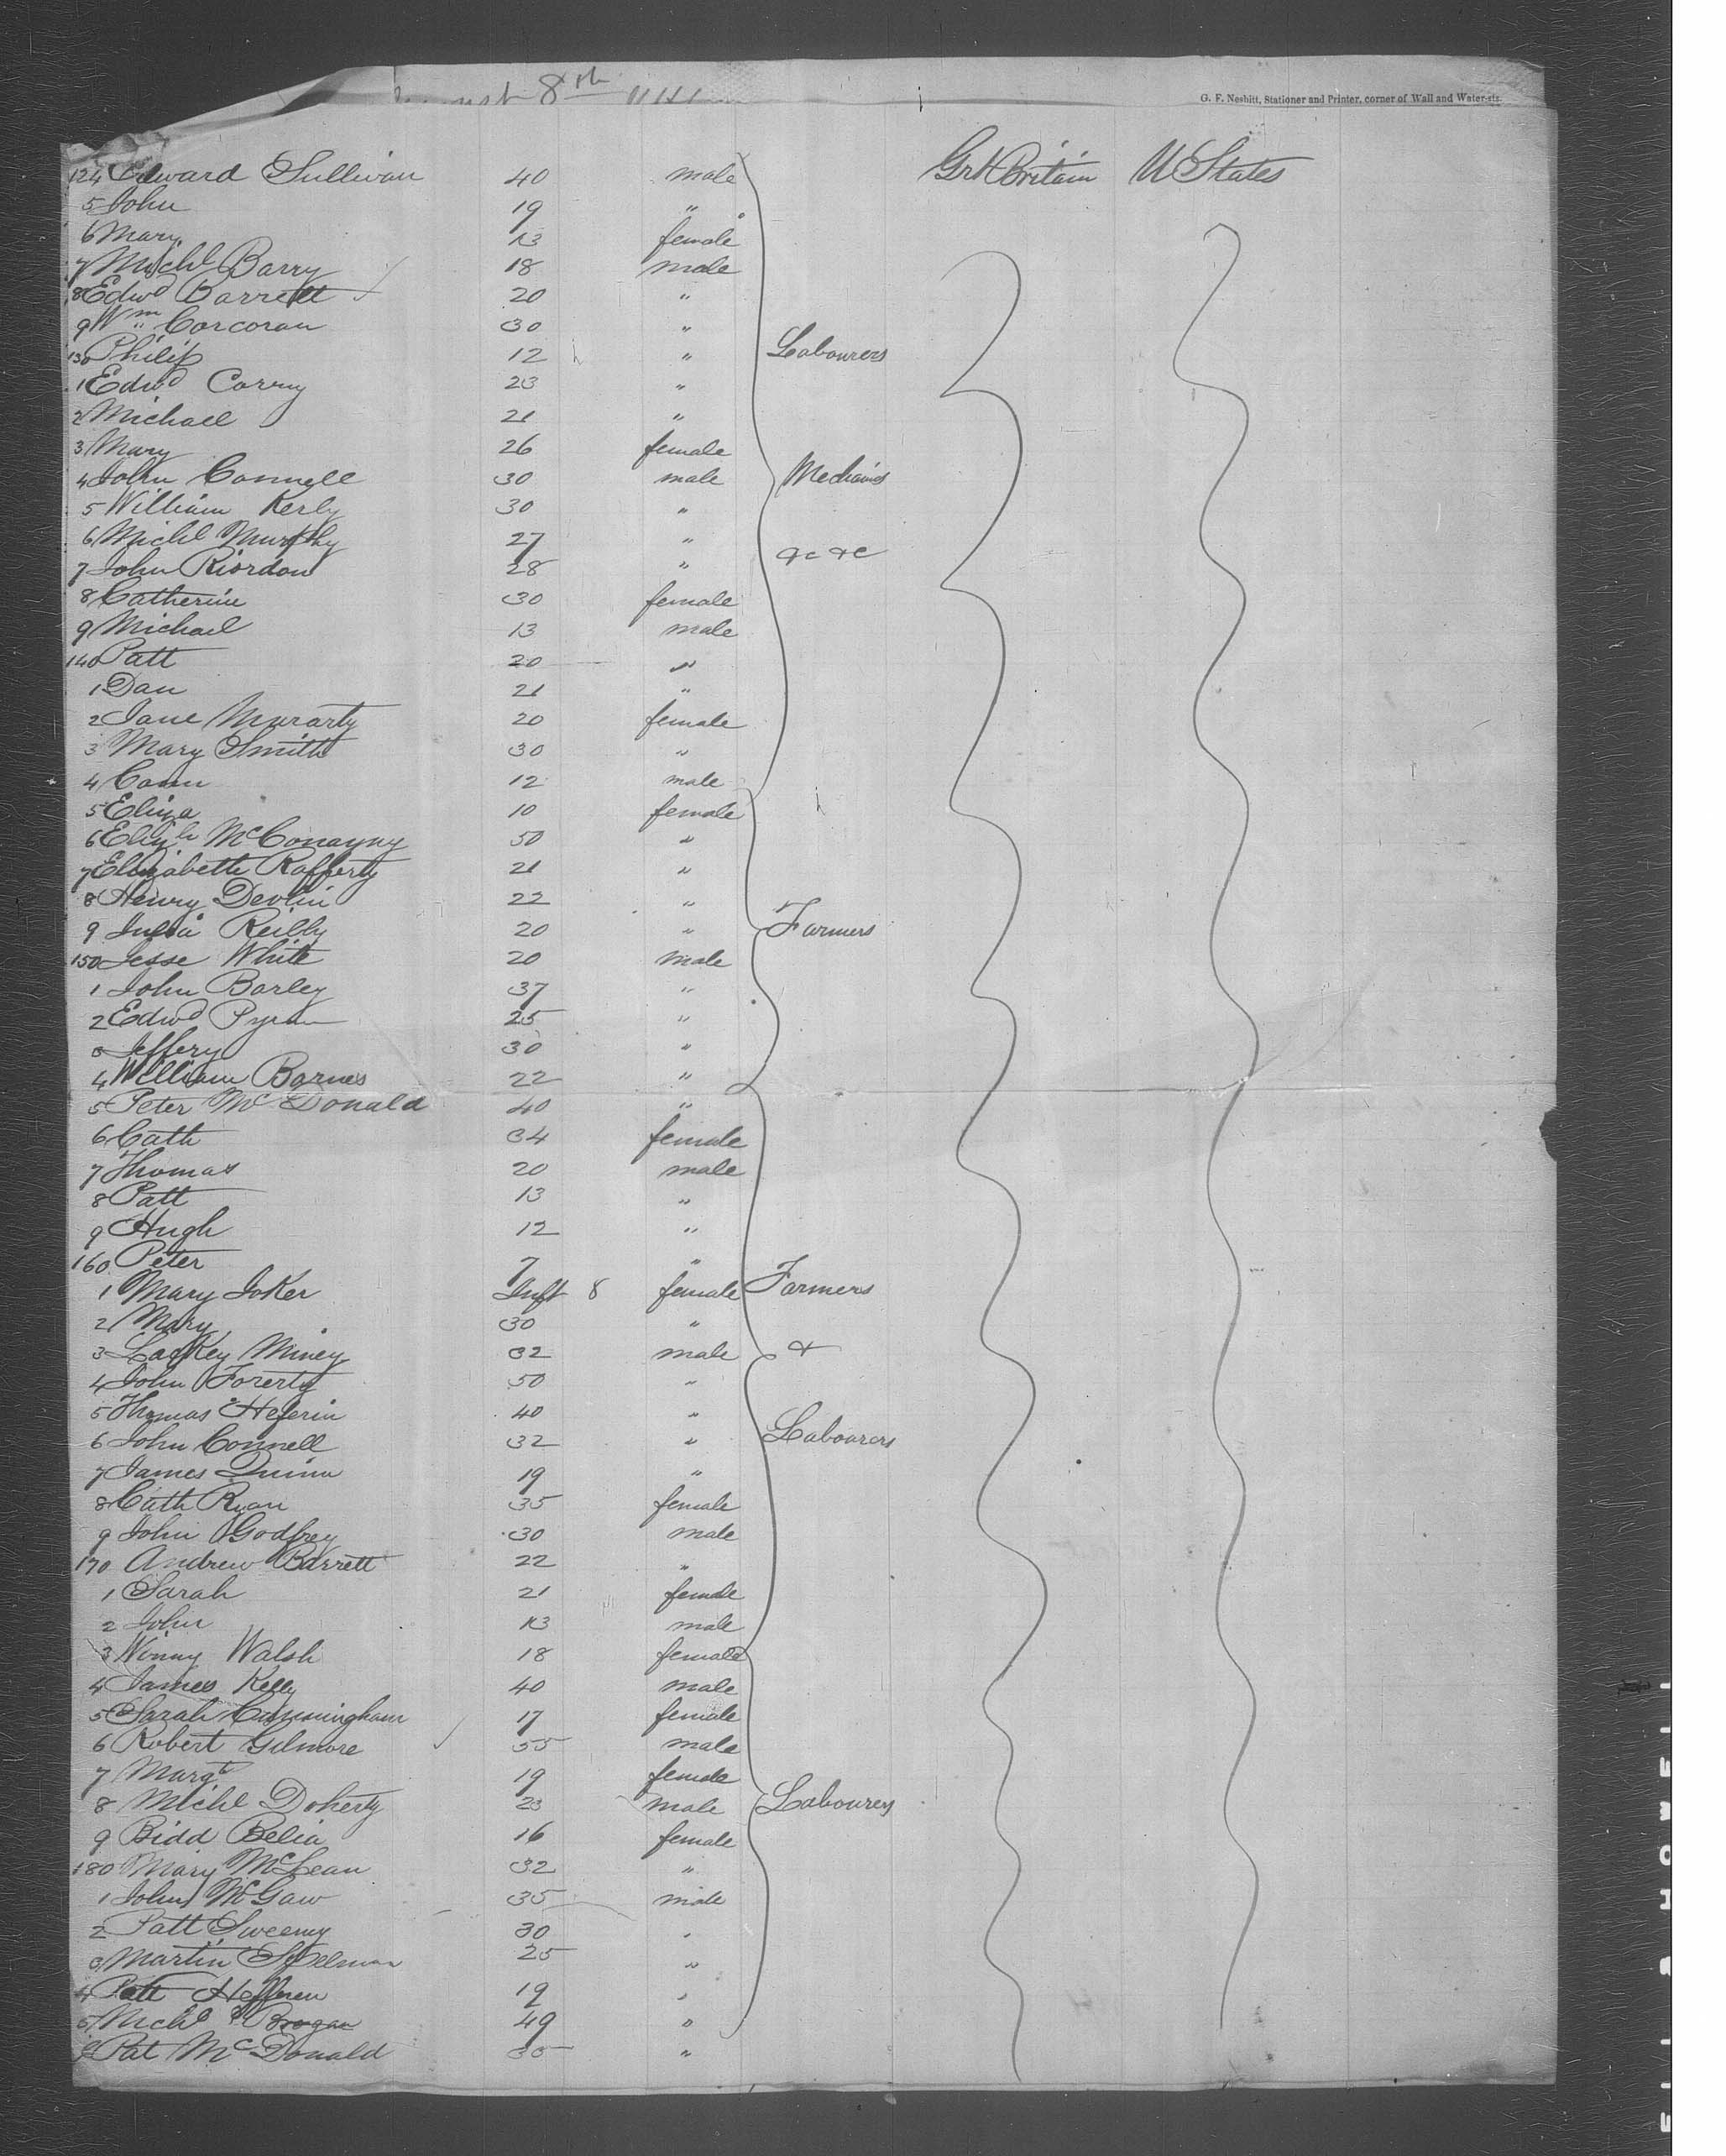 8th
G. F. Nesbitt, Stationer and Printer, corner of Wall and Water-sts.
124 Edward Sullivan 40 male Grt Britain U States
5 John 19 "
6 Mary 13 female
7 Michl Barry 18 male
8 Edwd Barrett 20 "
9 Wm Corcoran 30 "
130 Philip 12 " Labourers
1 Edwd Corry 23 "
2 Michael 21 "
3 Mary 26 female
4 John Connell 30 male Mechanics
5 William Kerly 30 "
6 Michl Murphy 27 " &c &c
7 John Riordon 28 "
8 Catherine 30 female
9 Michael 13 male
140 Patt 20 "
1 Dan 21 "
2 Jane Murarty 20 female
3 Mary Smith 30 "
4 Conn 12 male
5 Eliza 10 female
6 Elizh McConayny 50 "
7 Elizabeth Rafferty 21 "
8 Henry Devlin 22 "
9 Julia Reilly 20 " Farmers
150 Jesse White 20 male
1 John Barley 37 "
2 Edwd 25 "
3 Jeffery 30 "
4 William Barnes 22 "
5 Peter McDonald 40 "
6 Cath 34 female
7 Thomas 20 male
8 Patt 13 "
9 Hugh 12 "
160 Peter 7 "
1 Mary Joker Inft 8 female Farmers
2 Mary 30 "
3 Laskey Miney 32 male &
4 John Forerty 50 "
5 Thomas Heferin 40 "
6 John Connell 32 " Labourers
7 James Quinn 19 "
8 Cath Ryan 35 female
9 John Godfrey 30 male
170 Andrew Barrett 22 "
1 Sarah 21 female
2 John 13 male
3 Winny Walsh 18 female
4 James Kelly 40 male
5 Sarah Cunningham 17 female
6 Robert Gilmore 55 male
7 Margt 19 female
8 Michl Doherty 23 male Labourers
9 Bidd Belia 16 female
180 Mary McLean 32 "
1 John McGaw 35 male
2 Patt Sweeny 30 "
3 Martin Spelman 25 "
4 Patt Hefferen 19 "
5 Michl Brogan 49 "
6 Pat McDonald 35 "